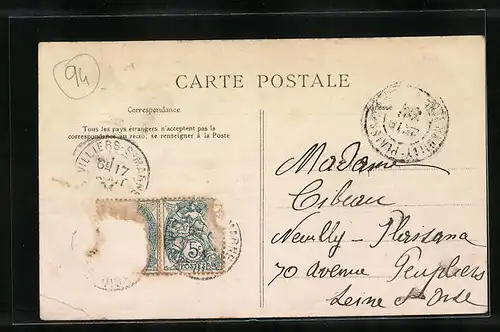 94
CARTE POSTALE
Correspondance
Tous les pays étrangers n'acceptent pas la
correspondance au recto, se renseigner à la Poste
Adresse
VILLIERS-S-MARNE
17
5c
Madame
Cibeau
Neuilly - Plaisana
70 avenue Peupliers
Seine et Oise